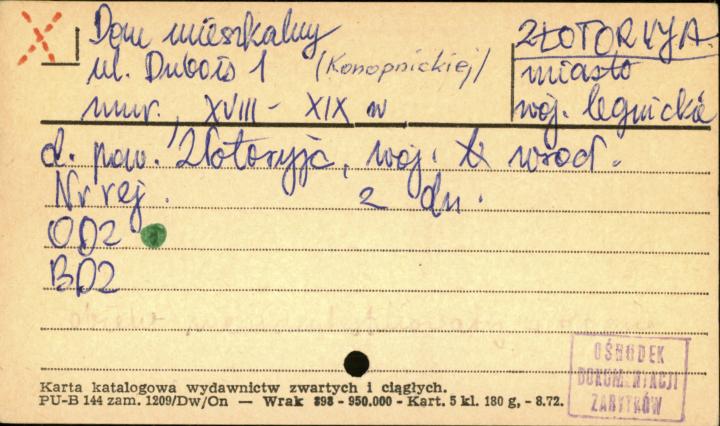 Dom mieszkalny
ul. Dubois 1 (Konopnickiej)
mur., XVIII - XIX w
ZŁOTORYJA
miasto
woj. legnickie
d. pow. Złotoryja, woj. wrocł.
Nr rej. z dn.
OD2
BD2
OŚRODEK
DOKUMENTACJI
ZABYTKÓW
Karta katalogowa wydawnictw zwartych i ciągłych.
PU-B 144 zam. 1209/Dw/On — Wrak 898 - 950.000 - Kart. 5 kl. 180 g, - 8.72.